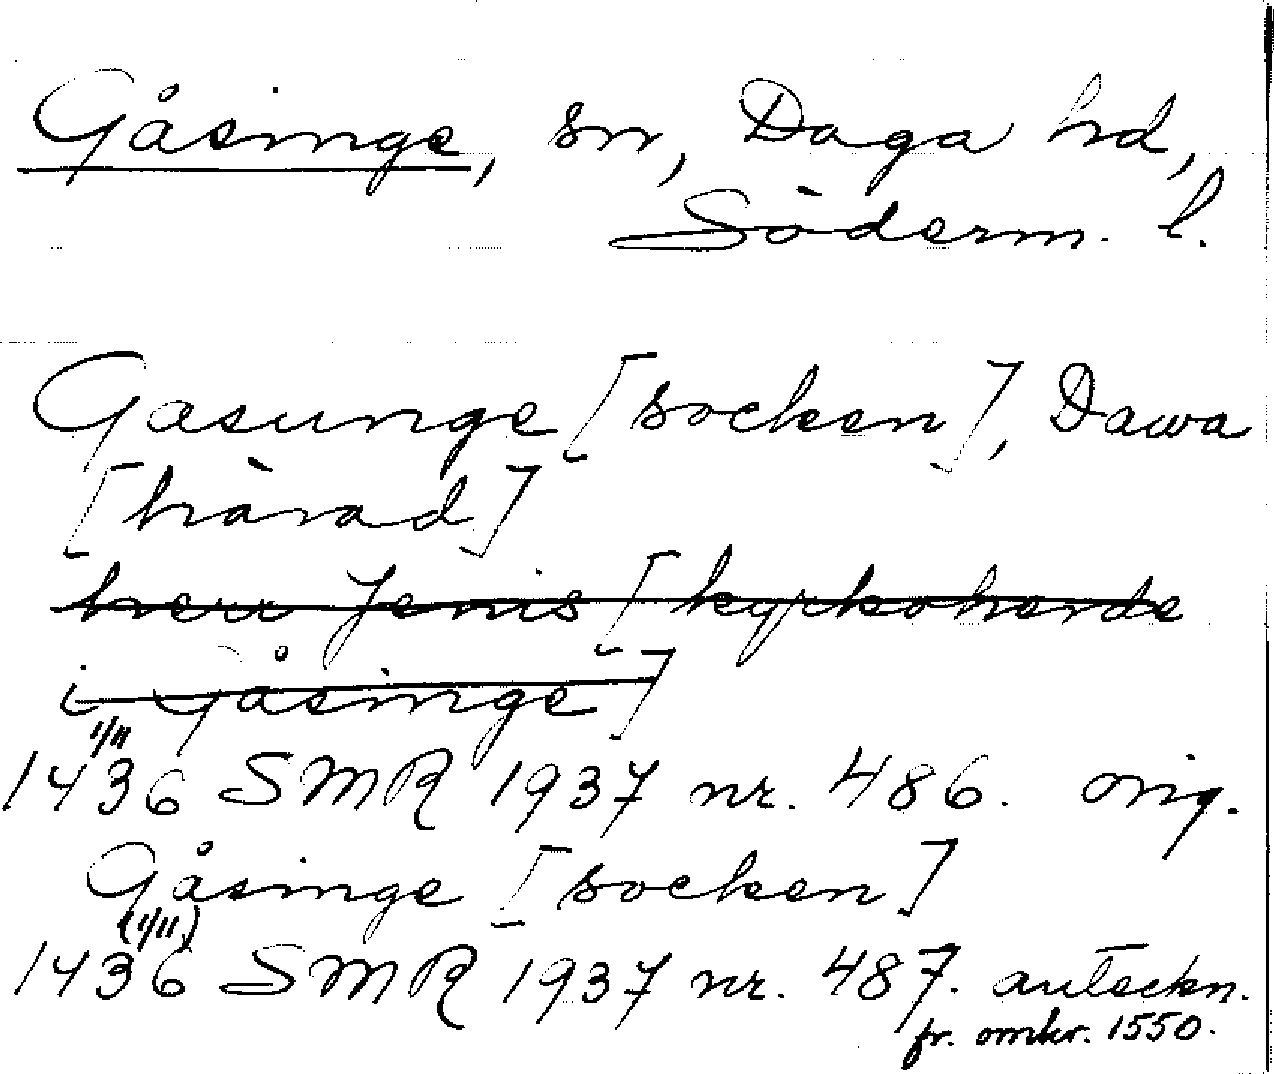 Gåsinge, sn, Daga hd,
Söderm. l.
Gasunge [socken], Dawa
[härad]
herr Jenis [kyrkoherde
i Gåsinge]
1/11
1436 SMR 1937 nr. 486. orig.
Gåsinge [socken]
(1/11)
1436 SMR 1937 nr. 487. anteckn.
fr. omkr. 1550.